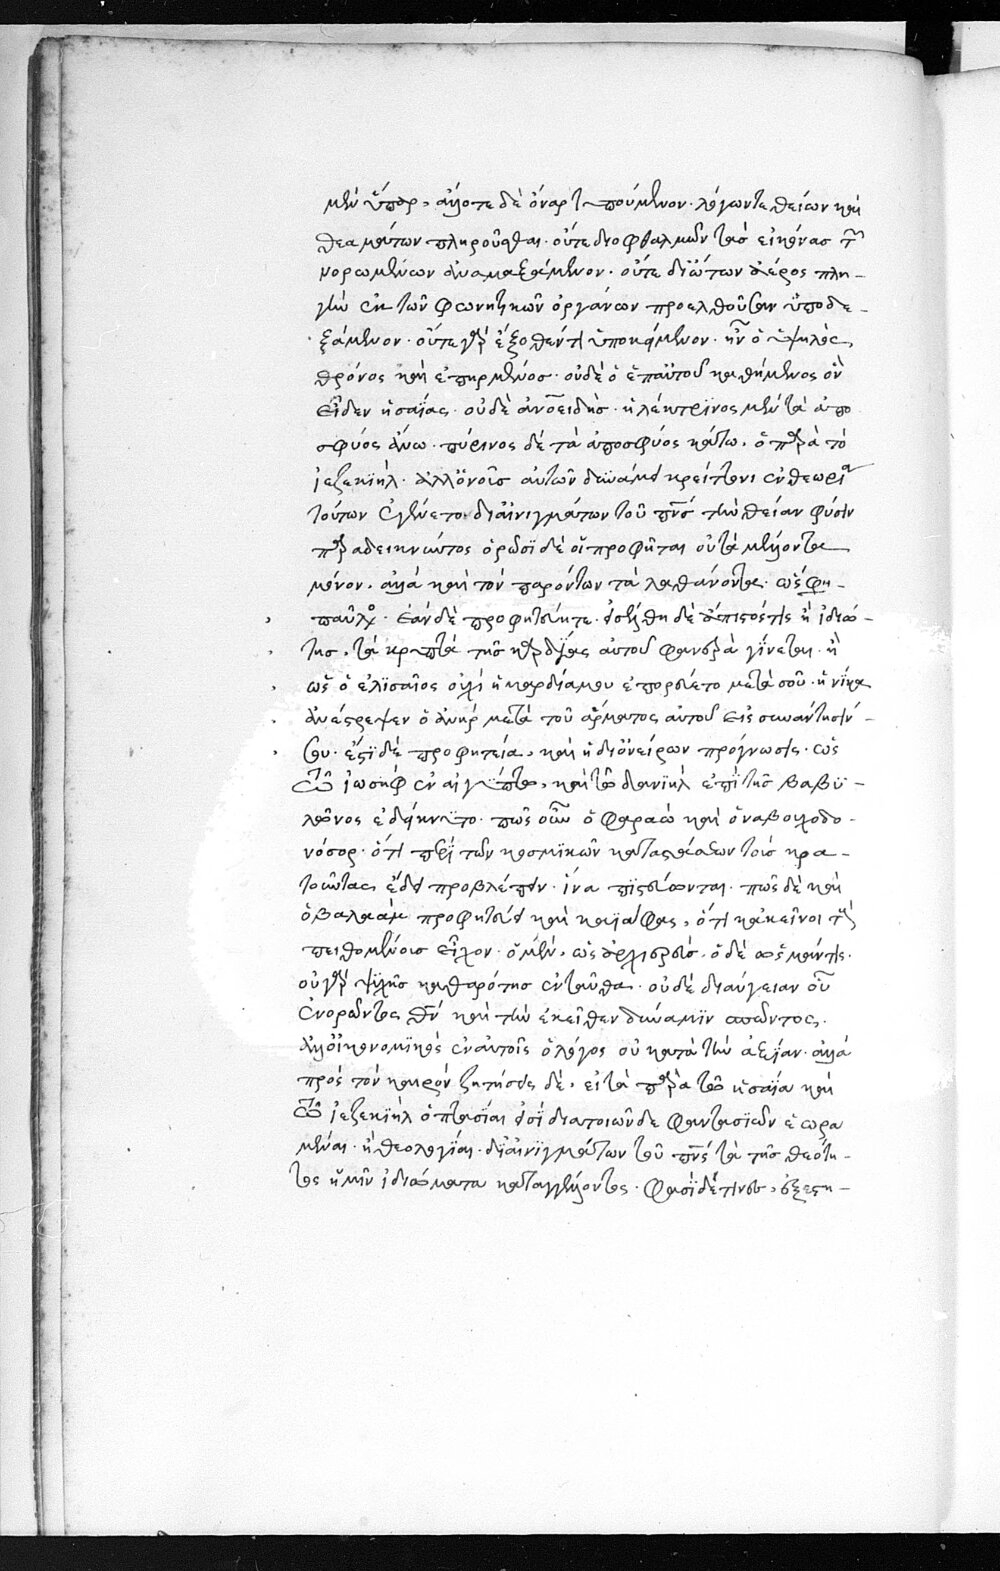 μὲν ὕπαρ, ἄλλοτε δὲ ὄναρ τυπούμενον· λόγων τε θείων καὶ
θεαμάτων πληροῦσθαι· οὔτε δι ὀφθαλμῶν τὰσ εἰκόνασ τῶ
νορωμένων ἀναμαξάμενον· οὔτε δι ὤτων ἀέρος πλη-
γὴν ἐκ τῶν φωνητικῶν ὀργάνων προελθοῦσαν ὑποδε-
ξάμενον· οὔτε γὰρ ἔξοθέν τι ὑποκείμενον· ἦν ὁ ὑψηλὸς
θρόνος καὶ ἐπηρμένοσ· οὐδὲ ὁ ἐπαὐτοῦ καθήμενος ὃν
εἶδεν ἡσαΐας· οὐδὲ ἀνοειδὴσ· ἠλέκτρϊνος μὲν τὰ ἀπο
σφύος ἄνω· πύρινος δὲ τὰ ἀποσφύος κάτω, ὁ παρὰ τὸ
ἰεζεκιὴλ· ἀλλὁνοῦσ αὐτῶν δυνάμει κρείττονι ἐν θεωρία
τούτων ἐγένετο· διαἰνιγμάτων τοῦ πνσ τὴν θείαν φύσιν
παραδεικνύντος ὁρῶσϊ δὲ οἱ προφῆται οὐ τὰ μέλλοντα
μόνον, ἀλλὰ καὶ τὸν παρόντων τὰ λαθάνοντα· ὥς φη-
παῦλος· ἐὰν δὲ προφητεύητε· εἰσέλθη δὲ ἄπιστός τις ἢ ἰδιώ-
τησ, τὰ κρυπτὰ τῆσ καρδΐας αὐτοῦ φανερὰ γΐνεται· ἢ
ὡς ὁ ἐλϊσαῖος οὐχὶ ἡ καρδία μου ἐπορεύετο μετὰ σοῦ· ἡνίκα
ἀνέστρεψεν ὁ ἀνὴρ μετὰ τοῦ ἅρματος αὐτοῦ εἰσ συνάντησιν
σου· ἔστϊ δὲ προφητεία, καὶ ἡ διὀνείρων πρόγνωσις· ὡς
τῶ ἰωσὴφ ἐν αἰγύπτω, καὶ τῶ δανϊὴλ ἐπΐ τῆσ βαβυ-
λῶνος ἐδείκνυτο· πῶς οὖν ὁ φαραὼ καὶ ὁ ναβουχοδο-
νόσορ· ὅτι περὶ τῶν κοσμϊκῶν καταστάσεων τοὺσ κρα-
τοῦντας ἔδει προβλέπειν· ἵνα πϊστεύωνται· πῶς δὲ καὶ
ὁ βαλαὰμ προφητεύει καὶ καϊάφας, ὅτι κἀκεῖνοι τοὺς
πειθομένουσ εἶχον· ὁ μὲν, ὡς ἀρχιερεὺσ, ὁ δὲ ὡς μάντις·
οὐ γὰρ ψυχῆσ καθαρότησ ἐνταῦθα· οὐδὲ διαύγειαν οὖ
ἐνορῶντος θν καὶ τὴν ἐκεῖθεν δύναμϊν σπῶντος,
ἀλλοἰκονομϊκὸς ἐναὐτοῖς ὁ λόγος οὐ κατὰ τὴν ἀξϊαν· ἀλλὰ
πρὸς τὸν καιρὸν ζητήσεις δὲ, εἰ τὰ παρὰ τῶ ἡσαΐα καὶ
τῶ ἰεζεκιὴλ ὀπτασϊαι εἰσΐ διατοιῶνδε φαντασϊῶν ἑωρα
μέναι· ἢ θεολογϊαι· διαἰνϊγμάτων τοῦ πνς τὰ τῆσ θεότη-
τος ἡμῖν ἰδιώματα καταγγέλλοντος· φασΐ δέ τινεσ, ἐξεστη-